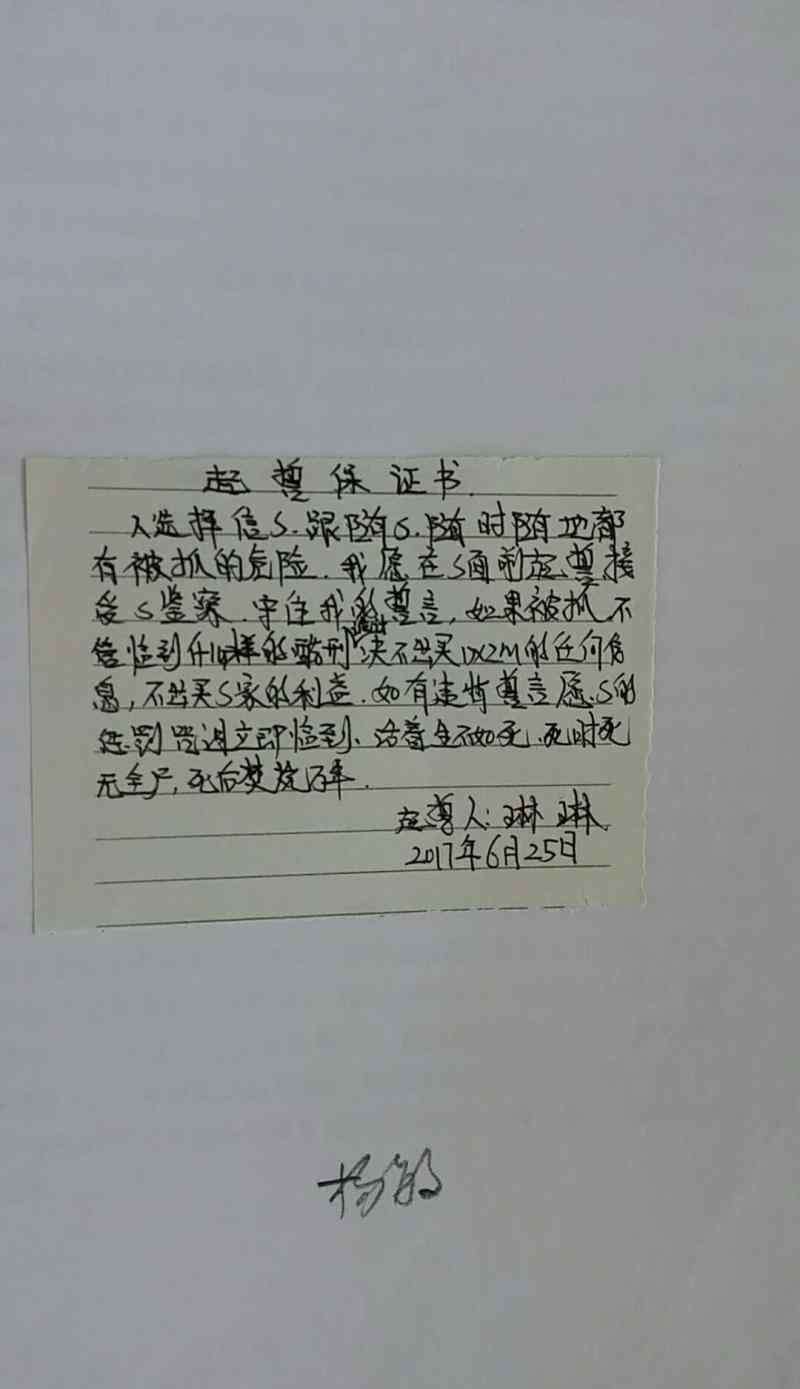 起誓保证书.
入选择信S.跟随S.随时随地都
有被抓的危险.我愿在S面前起誓接
受S鉴察.守住我的誓言,如果被抓不
管临到什么样的酷刑决不出买DXZM的任何信
息,不出买S家的利益.如有违背誓言愿S的
惩罚咒诅立即临到、活着生不如死.死时死
无全尸,死后焚烧万年.
起誓人:琳琳.
2017年6月25日
杨